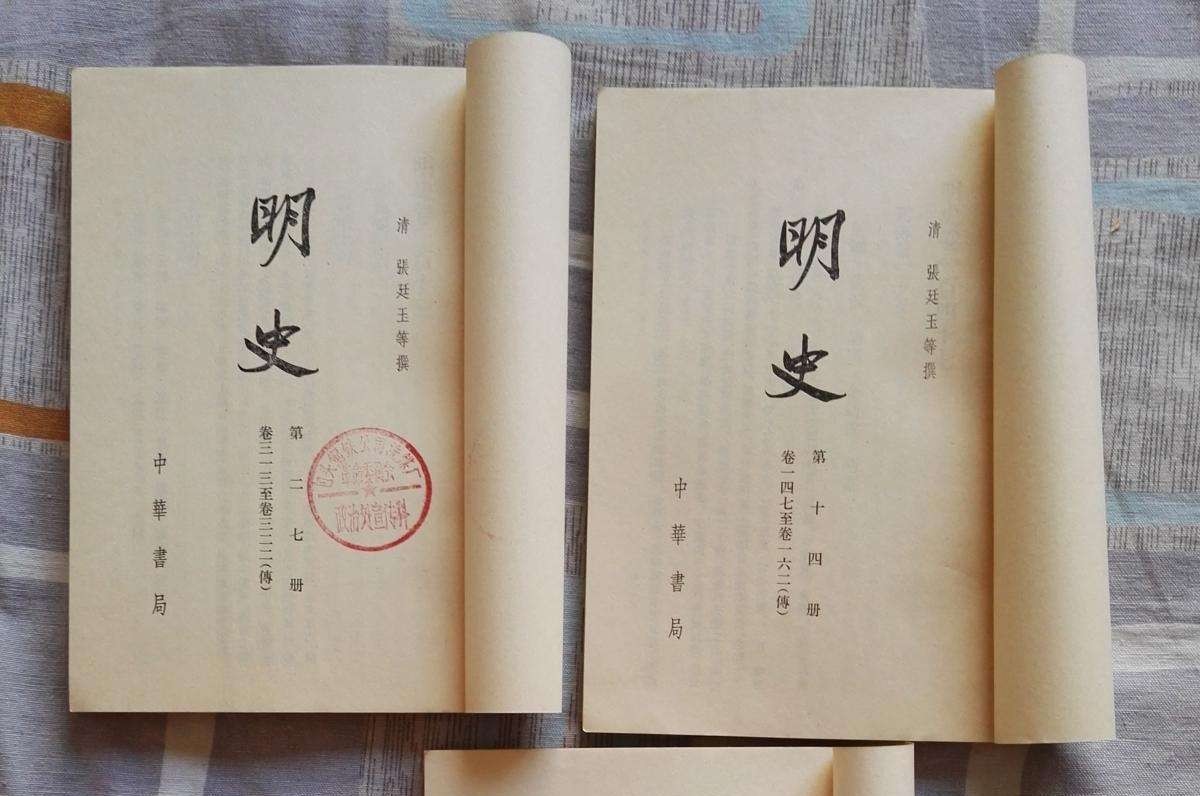 清 張廷玉等撰
明史
第二七册
卷三一三至卷三二二(傳)
中華書局
革命委員会
政治处宣传科
清 張廷玉等撰
明史
第十四册
卷一四七至卷一六二(傳)
中華書局